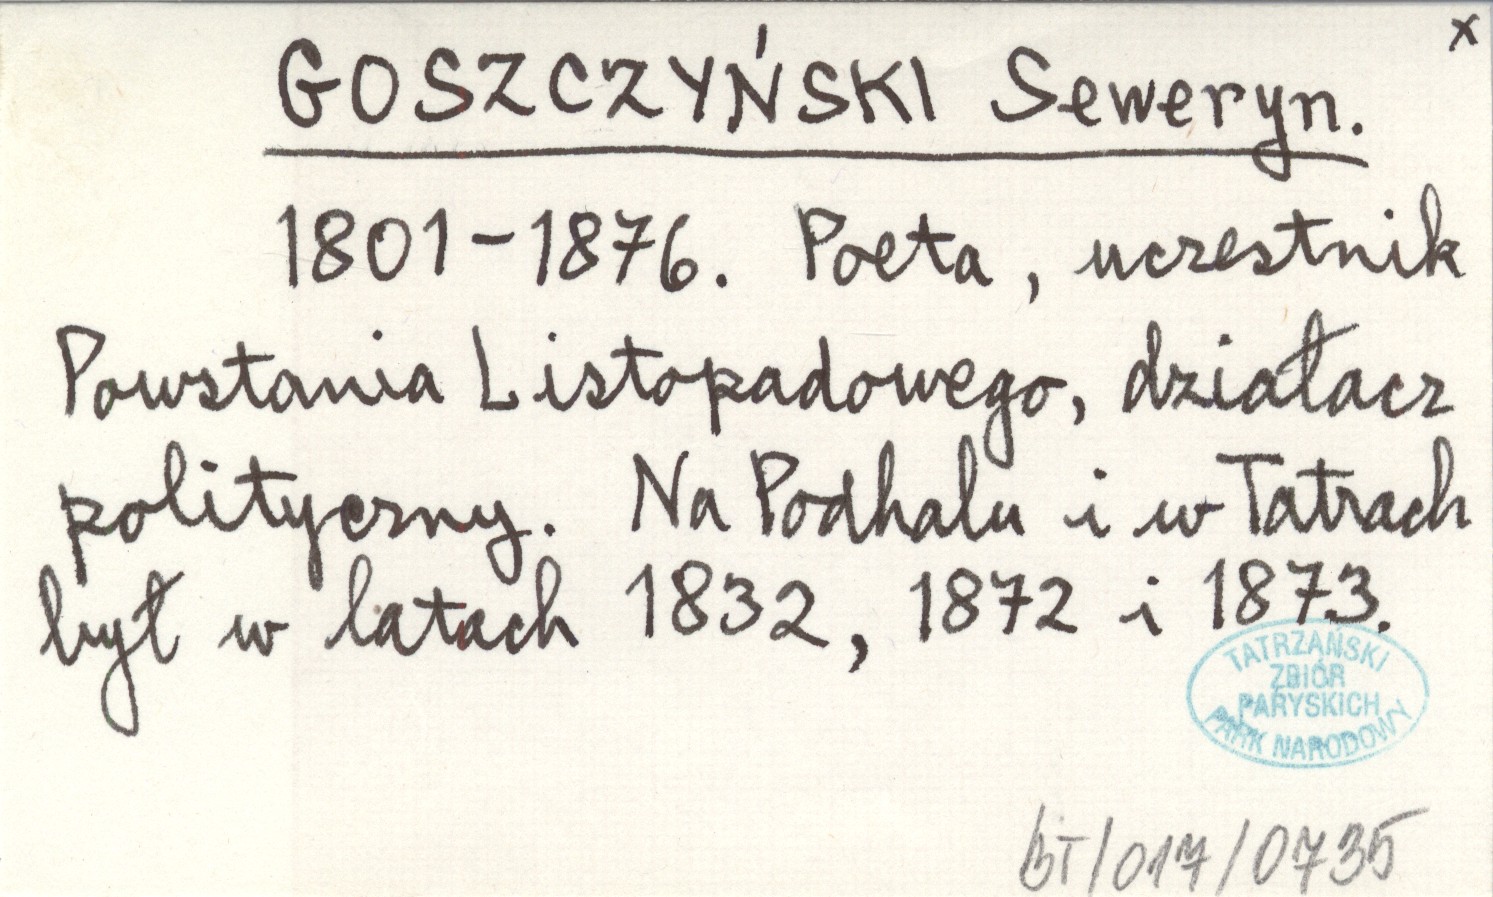 x
GOSZCZYŃSKI Seweryn.
1801-1876. Poeta, uczestnik
Powstania Listopadowego, działacz
polityczny. Na Podhalu i w Tatrach
był w latach 1832, 1872 i 1873.
TATRZAŃSKI
ZBIÓR
PARYSKICH
PARK NARODOWY
BT/017/0735